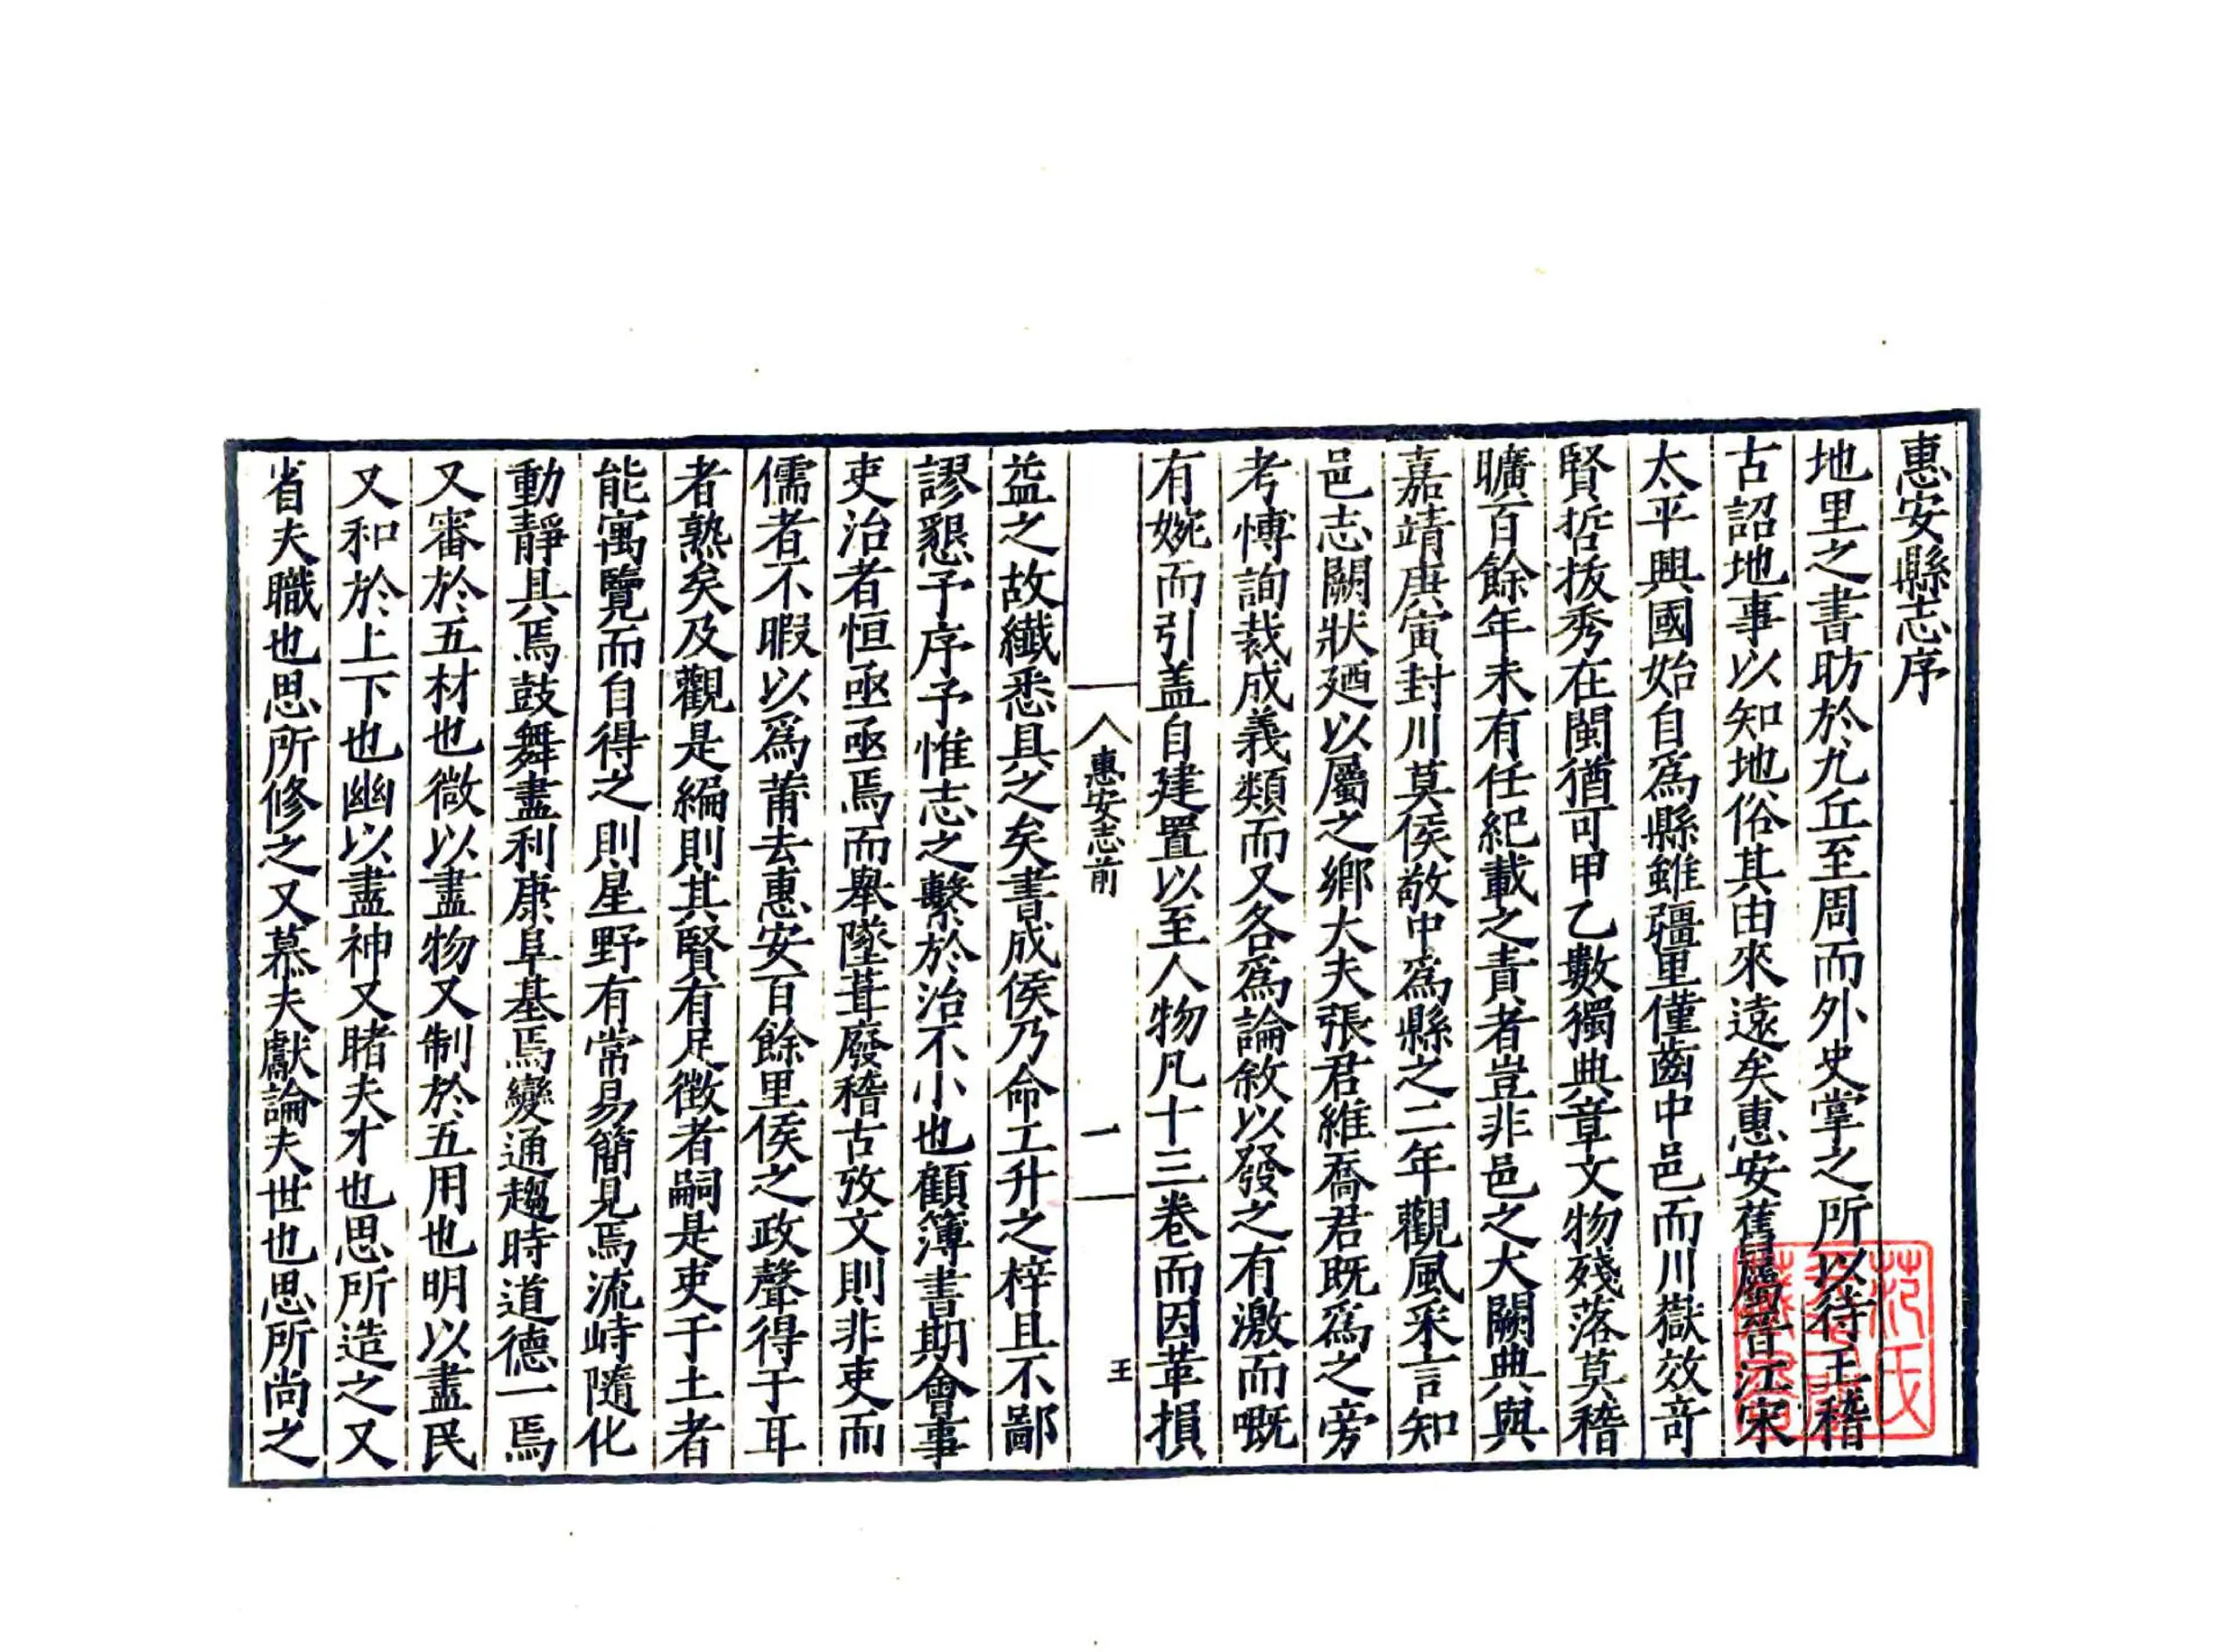 惠安縣志序
地里之書昉於九丘至周而外史掌之所以待王稽
古詔地事以知地俗其由來遠矣惠安舊屬晉江宋
太平興國始自爲縣雖疆里僅齒中邑而川嶽效竒
賢哲拔秀在閩猶可甲乙數獨典章文物殘落莫稽
曠百餘年未有任紀載之責者豈非邑之大闕典與
嘉靖庚寅封川莫侯敬中爲縣之二年觀風采言知
邑志闕狀廼以屬之鄉大夫張君維喬君既爲之旁
考愽詢裁成義類而又各爲論敘以發之有激而嘅
有婉而引盖自建置以至人物凡十三卷而因革損
惠安志前
一
王
益之故纎悉具之矣書成侯乃命工升之梓且不鄙
謬懇予序予惟志之繫於治不小也顧簿書期會事
吏治者恒亟亟焉而舉墜葺廢稽古攷文則非吏而
儒者不暇以爲莆去惠安百餘里侯之政聲得于耳
者熟矣及觀是編則其賢有足徵者嗣是吏于土者
能寓覽而自得之則星野有常易簡見焉流峙隨化
動靜具焉鼓舞盡利康阜基焉變通趨時道德一焉
又審於五材也微以盡物又制於五用也明以盡民
又和於上下也幽以盡神又睹夫才也思所造之又
省夫職也思所修之又慕夫獻論夫世也思所尚之
范氏